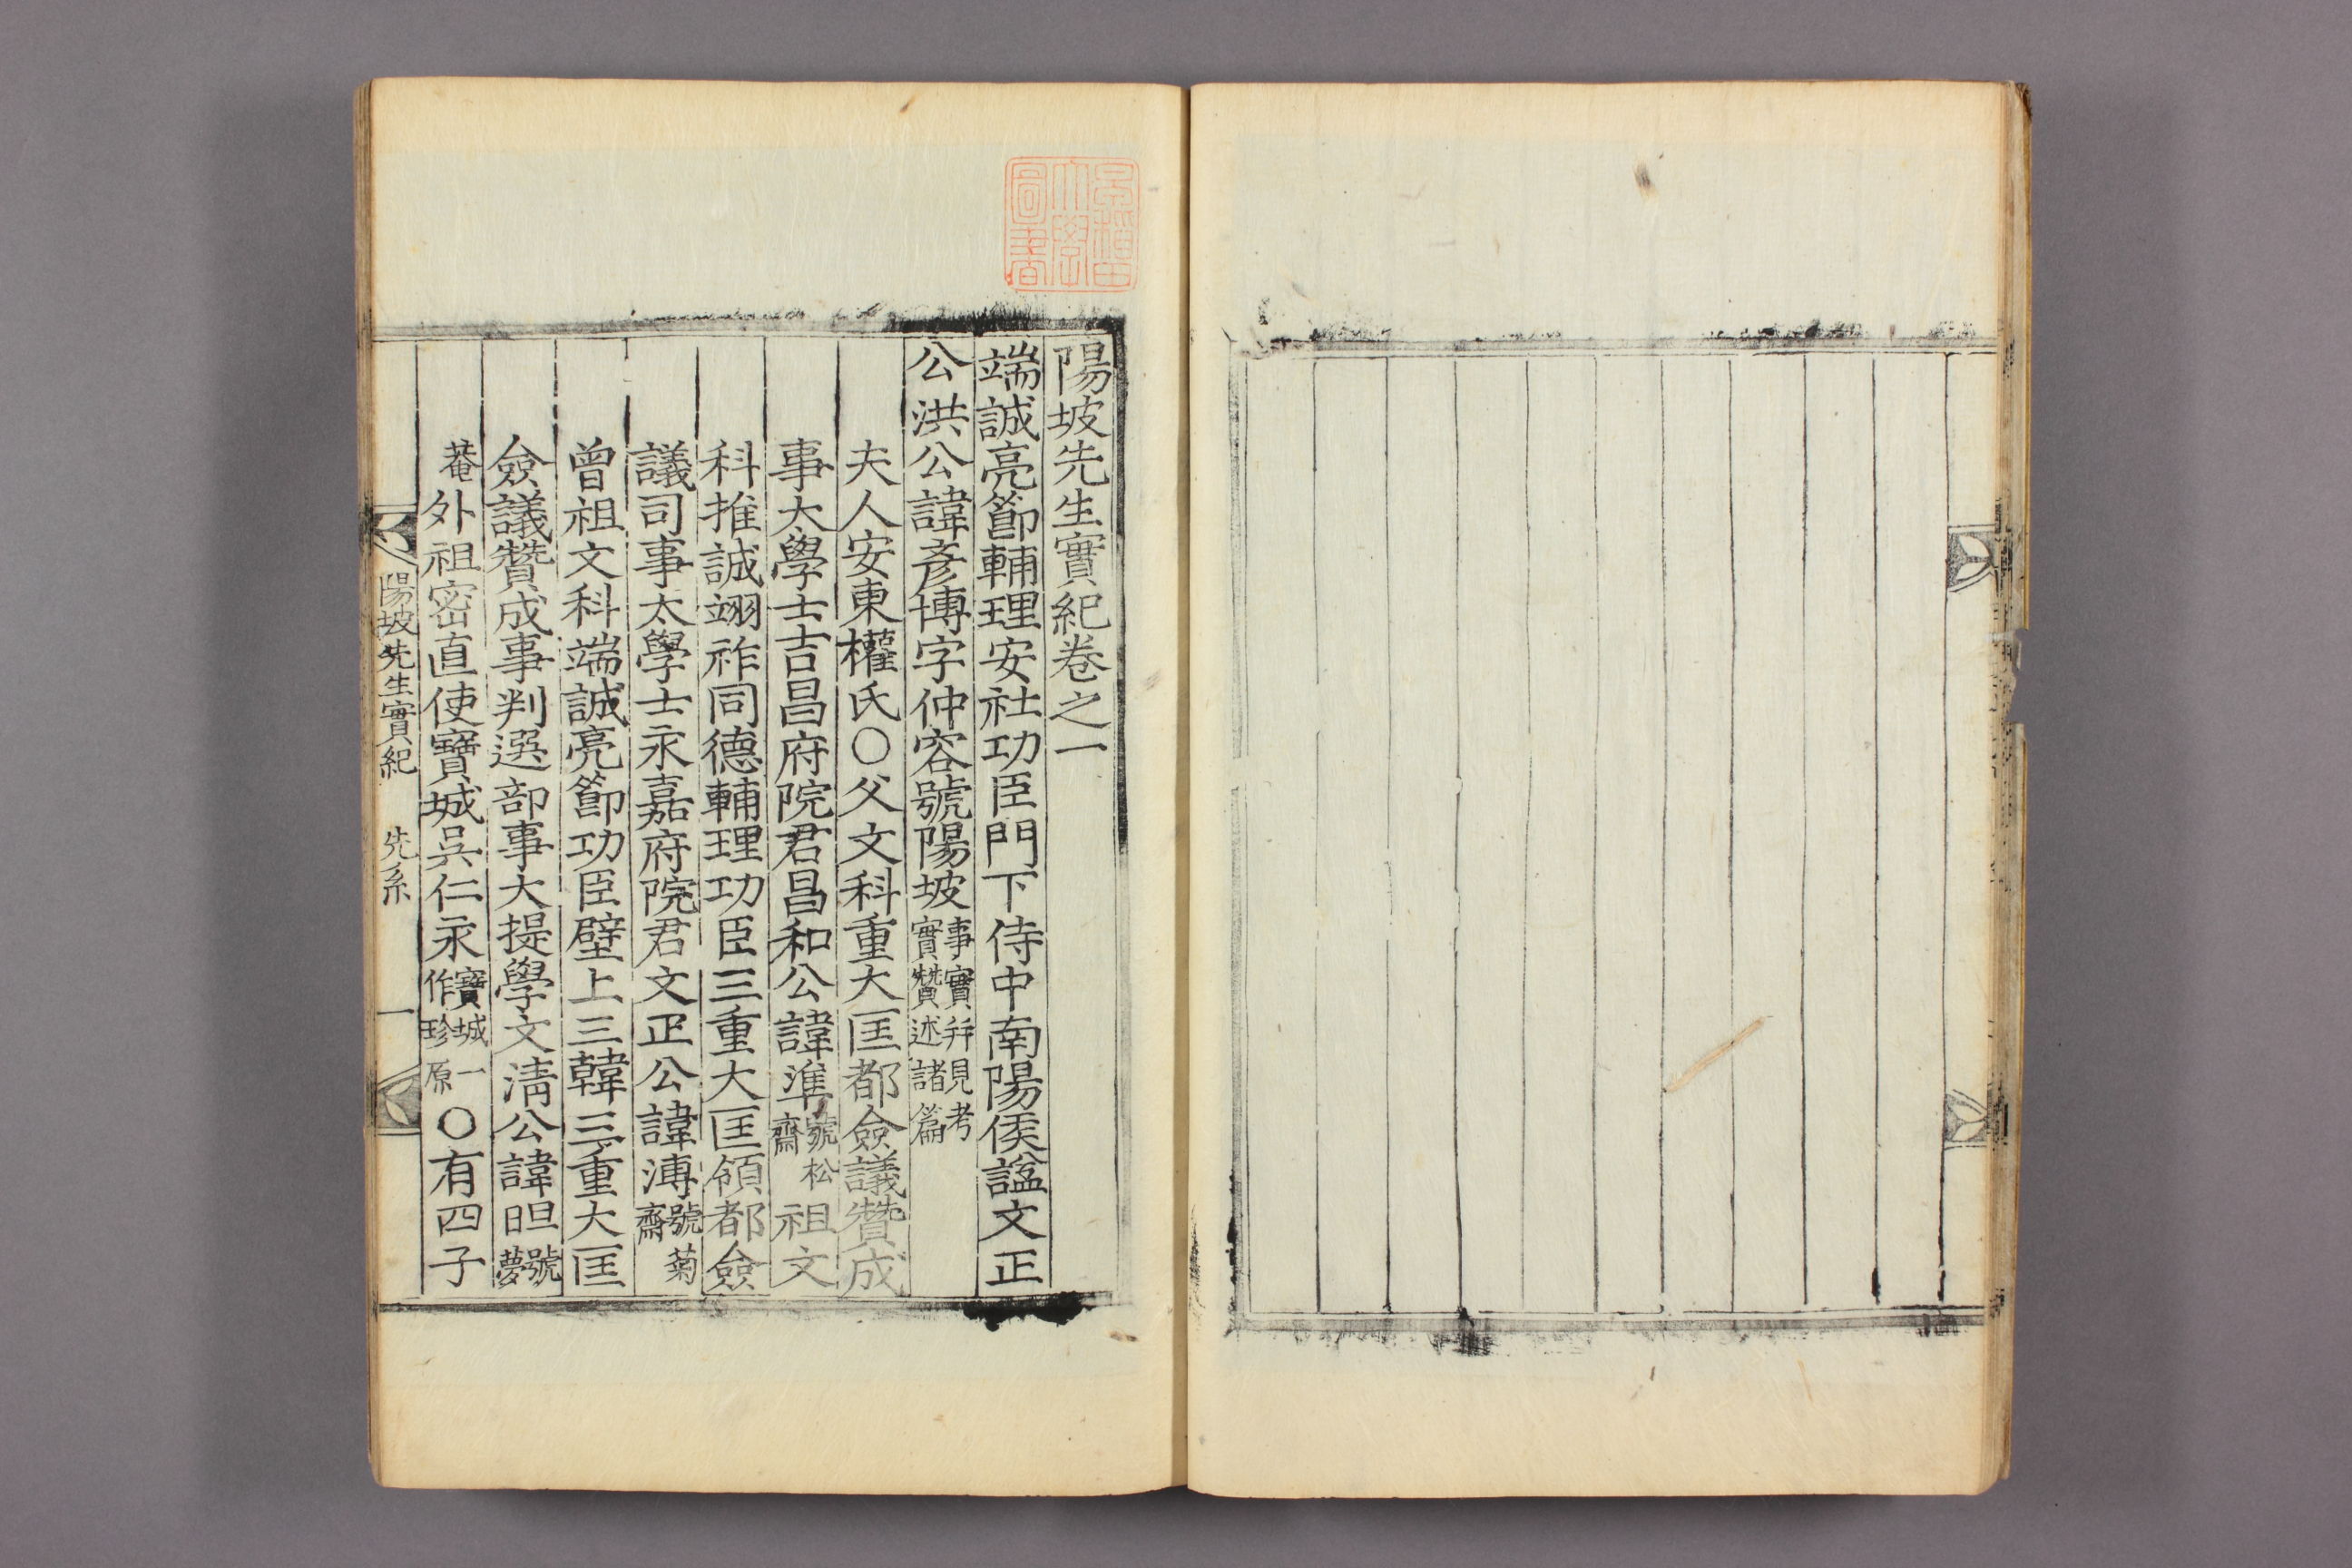 陽坡先生實紀卷之一
端誠亮節輔理安社功臣門下侍中南陽侯諡文正
公洪公諱彥博字仲容號陽坡事實幷見考實贊述諸篇
夫人安東權氏○父文科重大匡都僉議贊成
事大學士吉昌府院君昌和公諱準號松齋祖文
科推誠翊祚同德輔理功臣三重大匡領都僉
議司事太學士永嘉府院君文正公諱溥號菊齋
曾祖文科端誠亮節功臣壁上三韓三重大匡
僉議贊成事判選部事大提學文淸公諱㫜號夢
菴外祖密直使寶城吳仁永寶城一作珍原○有四子
陽坡先生實紀 先系 一
早稻田大學圖書